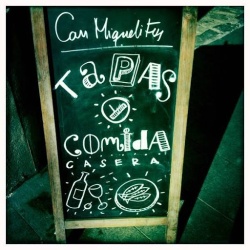 Can Miquelitus
TAPAS
COMIDA
CASERA